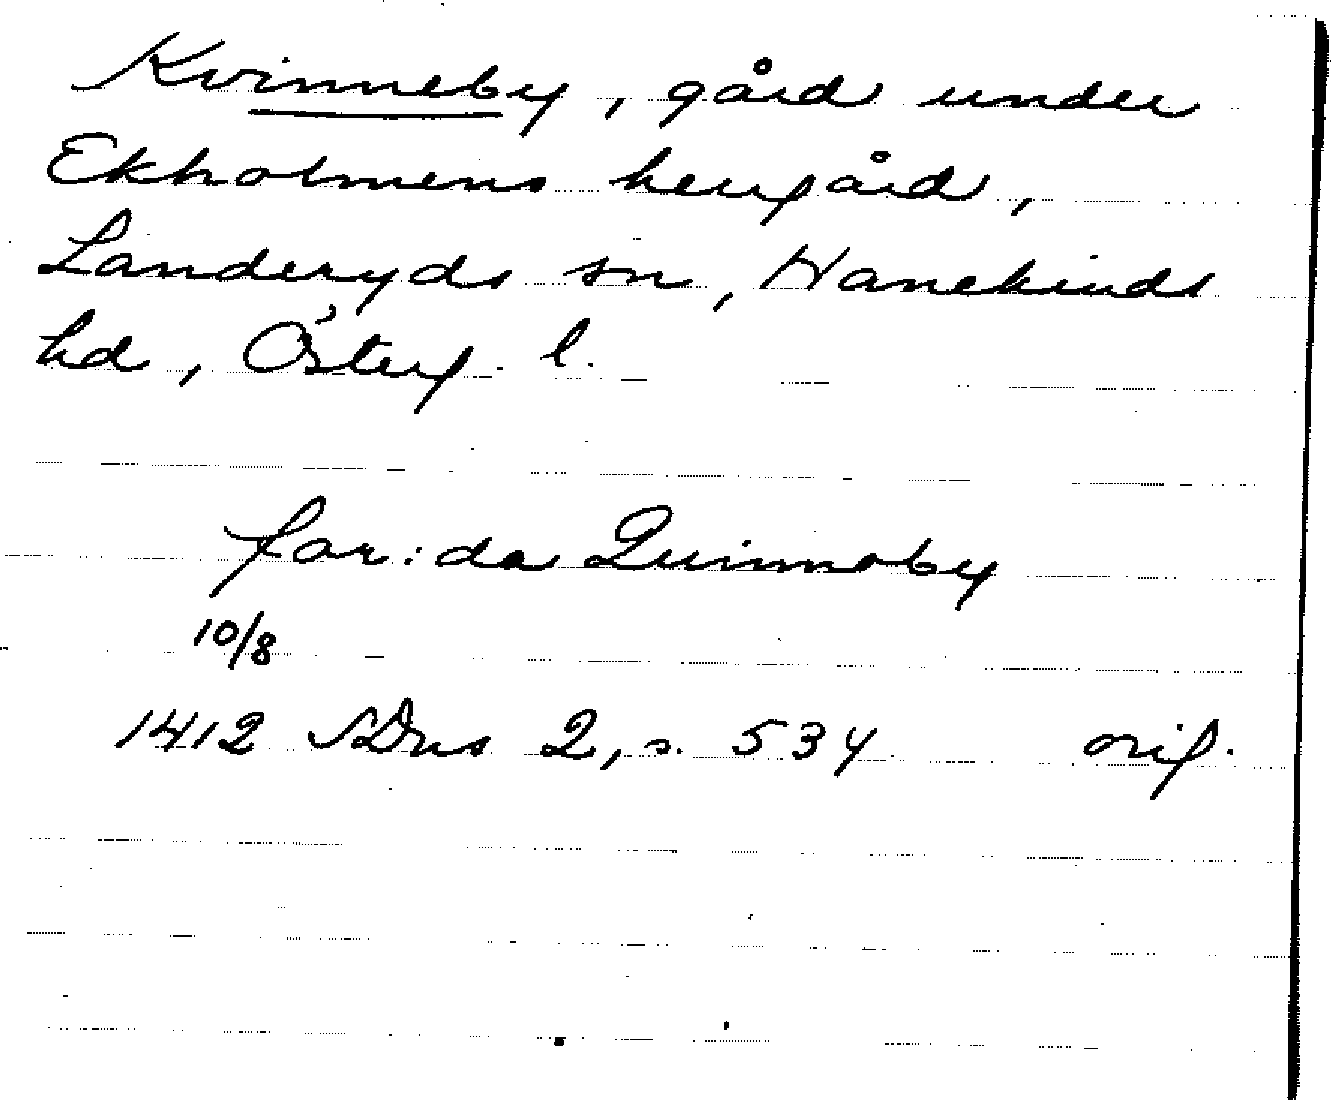 Kvinneby, gård under
Ekholmens herrgård,
Landeryds sn, Hanekinds
hd, Österg l.
for: da Quinnoby
10/8
1412 SDns 2, s. 534 orig.